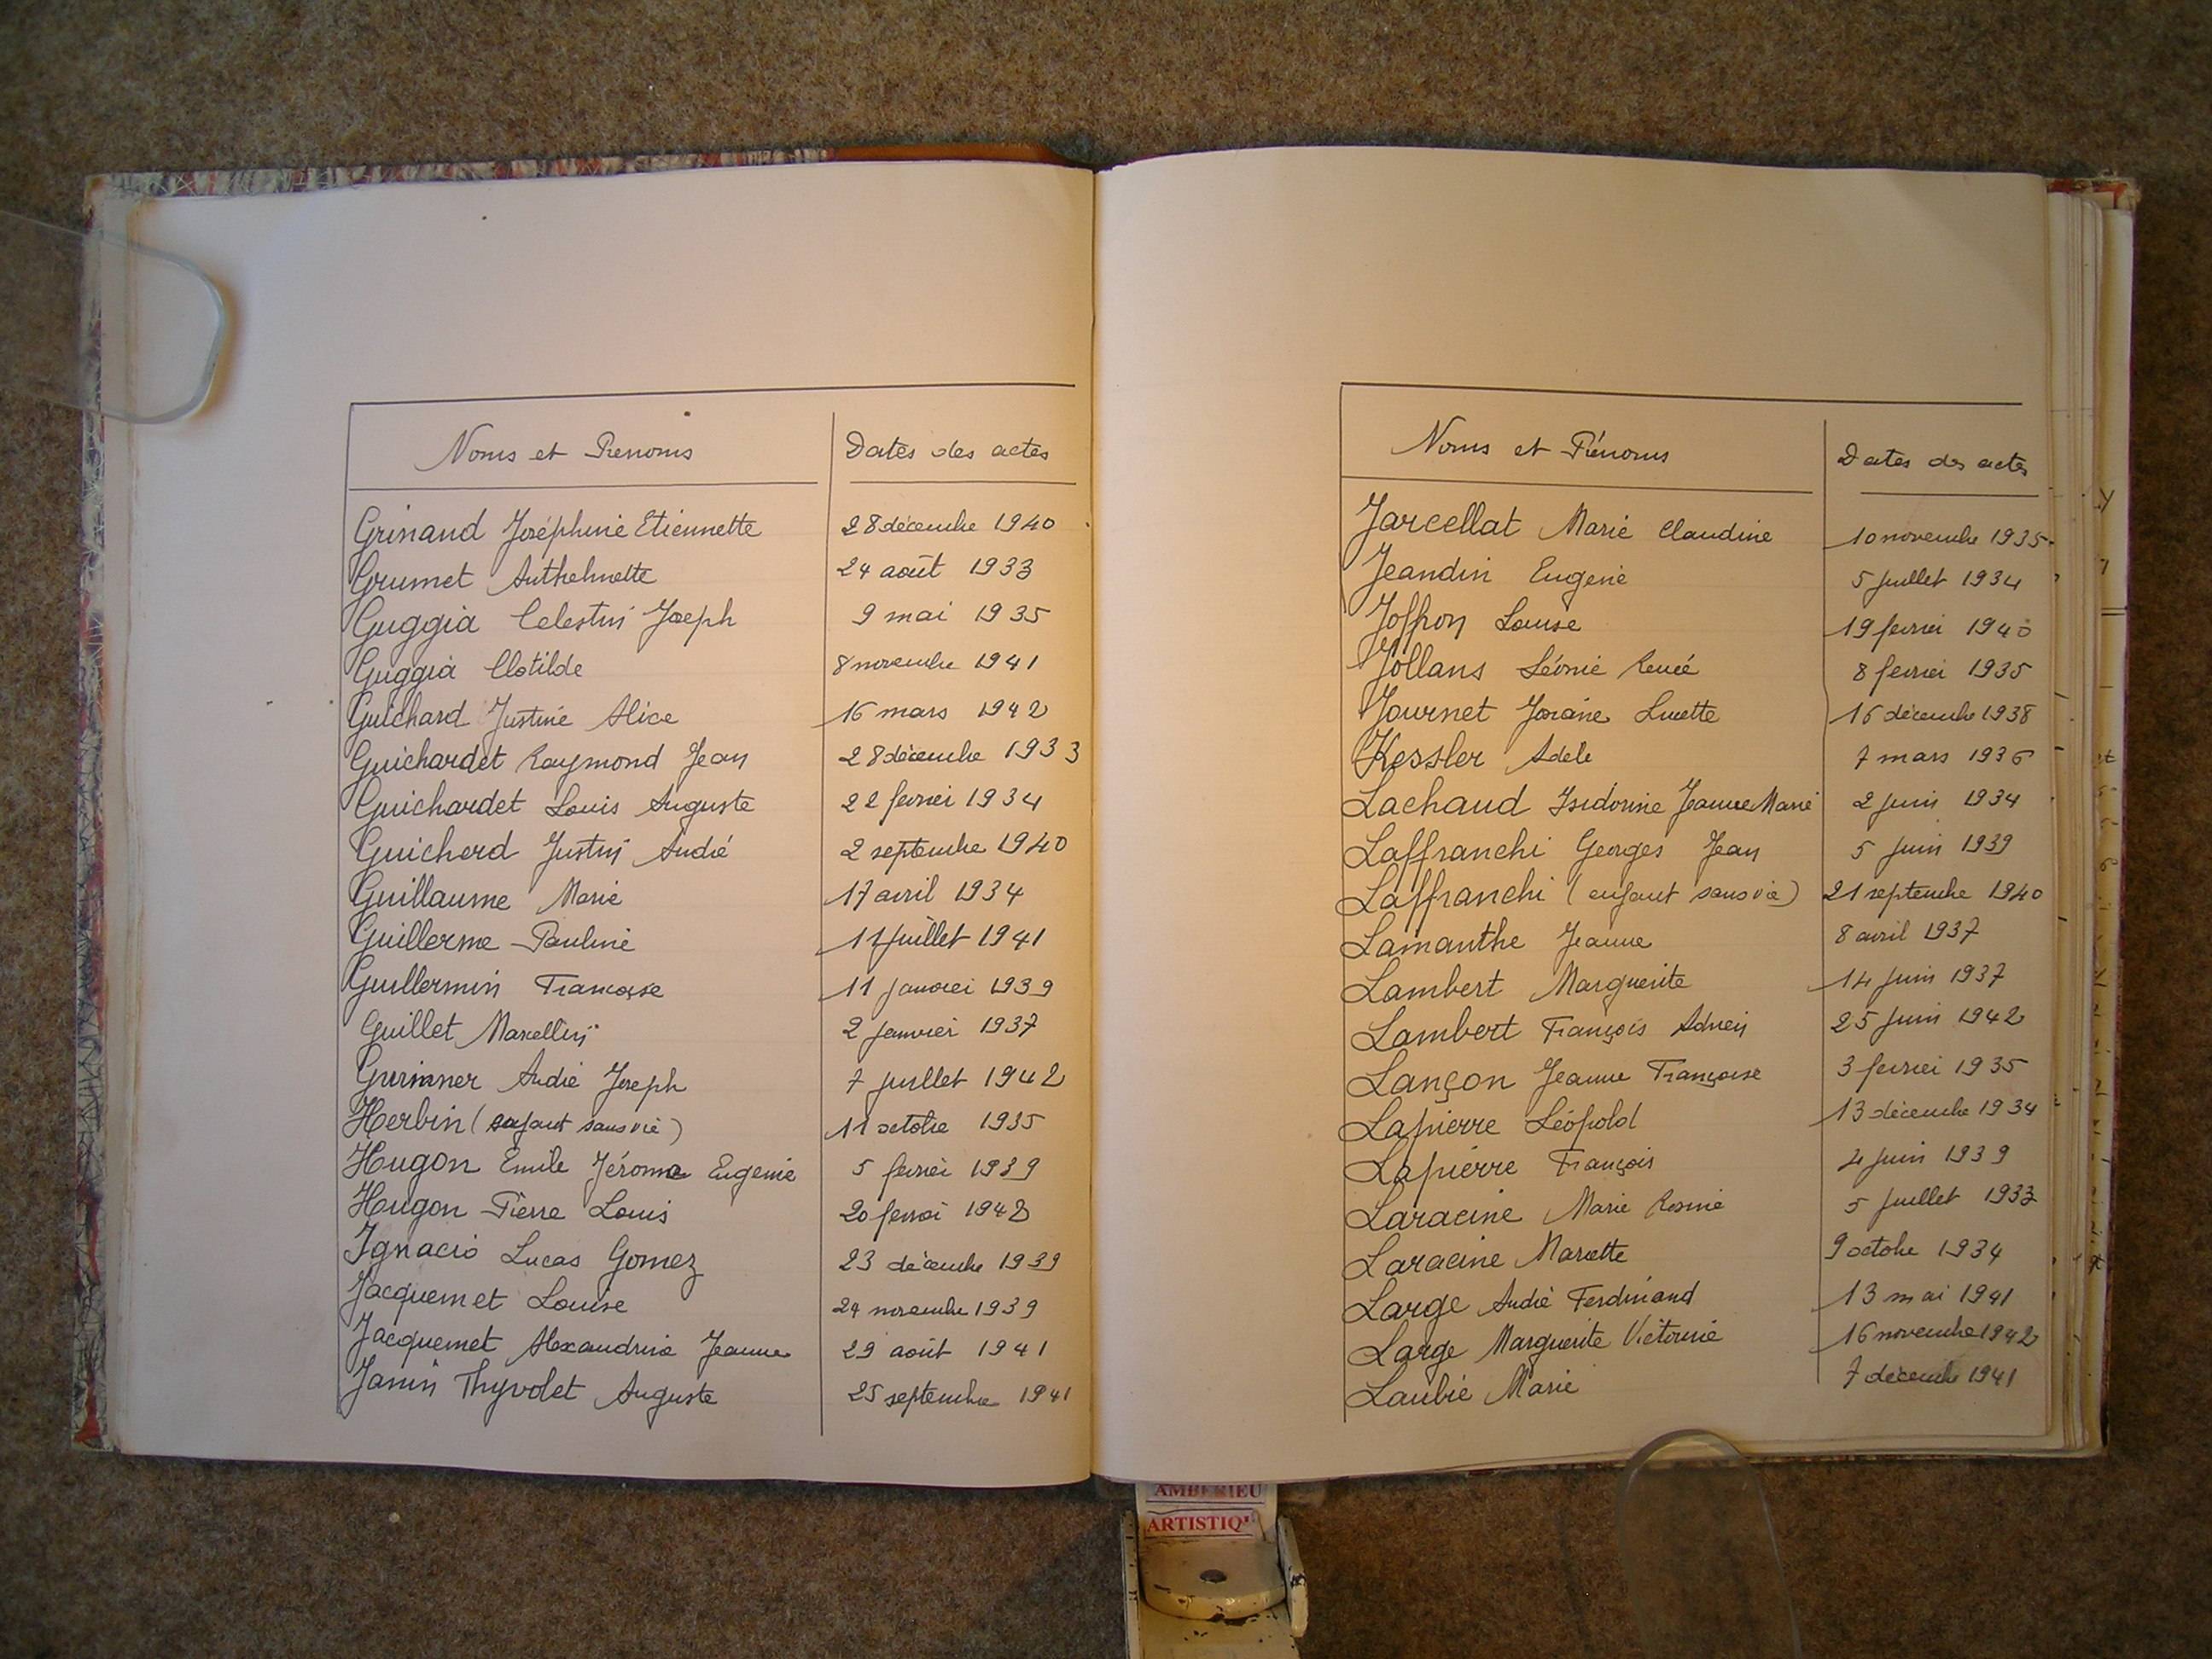 Noms et Prenoms Dates des actes
Grinand Joséphine Etiennette 28 décembre 1940
Grumet Anthelmette 24 août 1933
Guggia Celestin Joseph 9 mai 1935
Guggia Clotilde 8 novembre 1941
Guichard Justine Alice 16 mars 1942
Guichardet Raymond Jean 28 décembre 1933
Guichardet Louis Auguste 22 fevrier 1934
Guicherd Justin André 2 septembre 1940
Guillaume Marie 17 avril 1934
Guillerme Pauline 11 juillet 1941
Guillermin Françoise 11 janvier 1939
Guillet Marcellin 2 janvier 1937
André Joseph 7 juillet 1942
Herbin (enfant sans vie) 11 octobre 1935
Hugon Emile Jérome Eugenie 5 fevrier 1939
Hugon Pierre Louis 20 fevrier 1942
Ignacio Lucas Gomez 23 décembre 1939
Jacquemet Louise 24 novembre 1939
Jacquemet Alexandrine Jeanne 29 août 1941
Janin Thyvolet Auguste 25 septembre 1941
Noms et Prénoms Dates des actes
Jarcellat Marie Claudine 10 novembre 1935
Jeandin Eugenie 5 juillet 1934
Joffron Louise 19 fevrier 1940
Jollans Léonie Renée 8 fevrier 1935
Journet Josiane Lucette 16 décembre 1938
Kessler Adele 7 mars 1936
Lachaud Isidorine Jeanne Marie 2 juin 1934
Laffranchi Georges Jean 5 juin 1939
Laffranchi (enfant sans vie) 21 septembre 1940
Lamanthe Jeanne 8 avril 1937
Lambert Marguerite 14 juin 1937
Lambert François Adrien 25 juin 1942
Lançon Jeanne Françoise 3 fevrier 1935
Lapierre Léopold 13 décembre 1934
Lapierre François 4 juin 1939
Laracine Marie Rosine 5 juillet 1933
Laracine Mariette 9 octobre 1934
Large André Ferdinand 13 mai 1941
Large Marguerite Victorine 16 novembre 1942
Laubie Marie 7 décembre 1941
AMBERIEU
ARTISTIQ